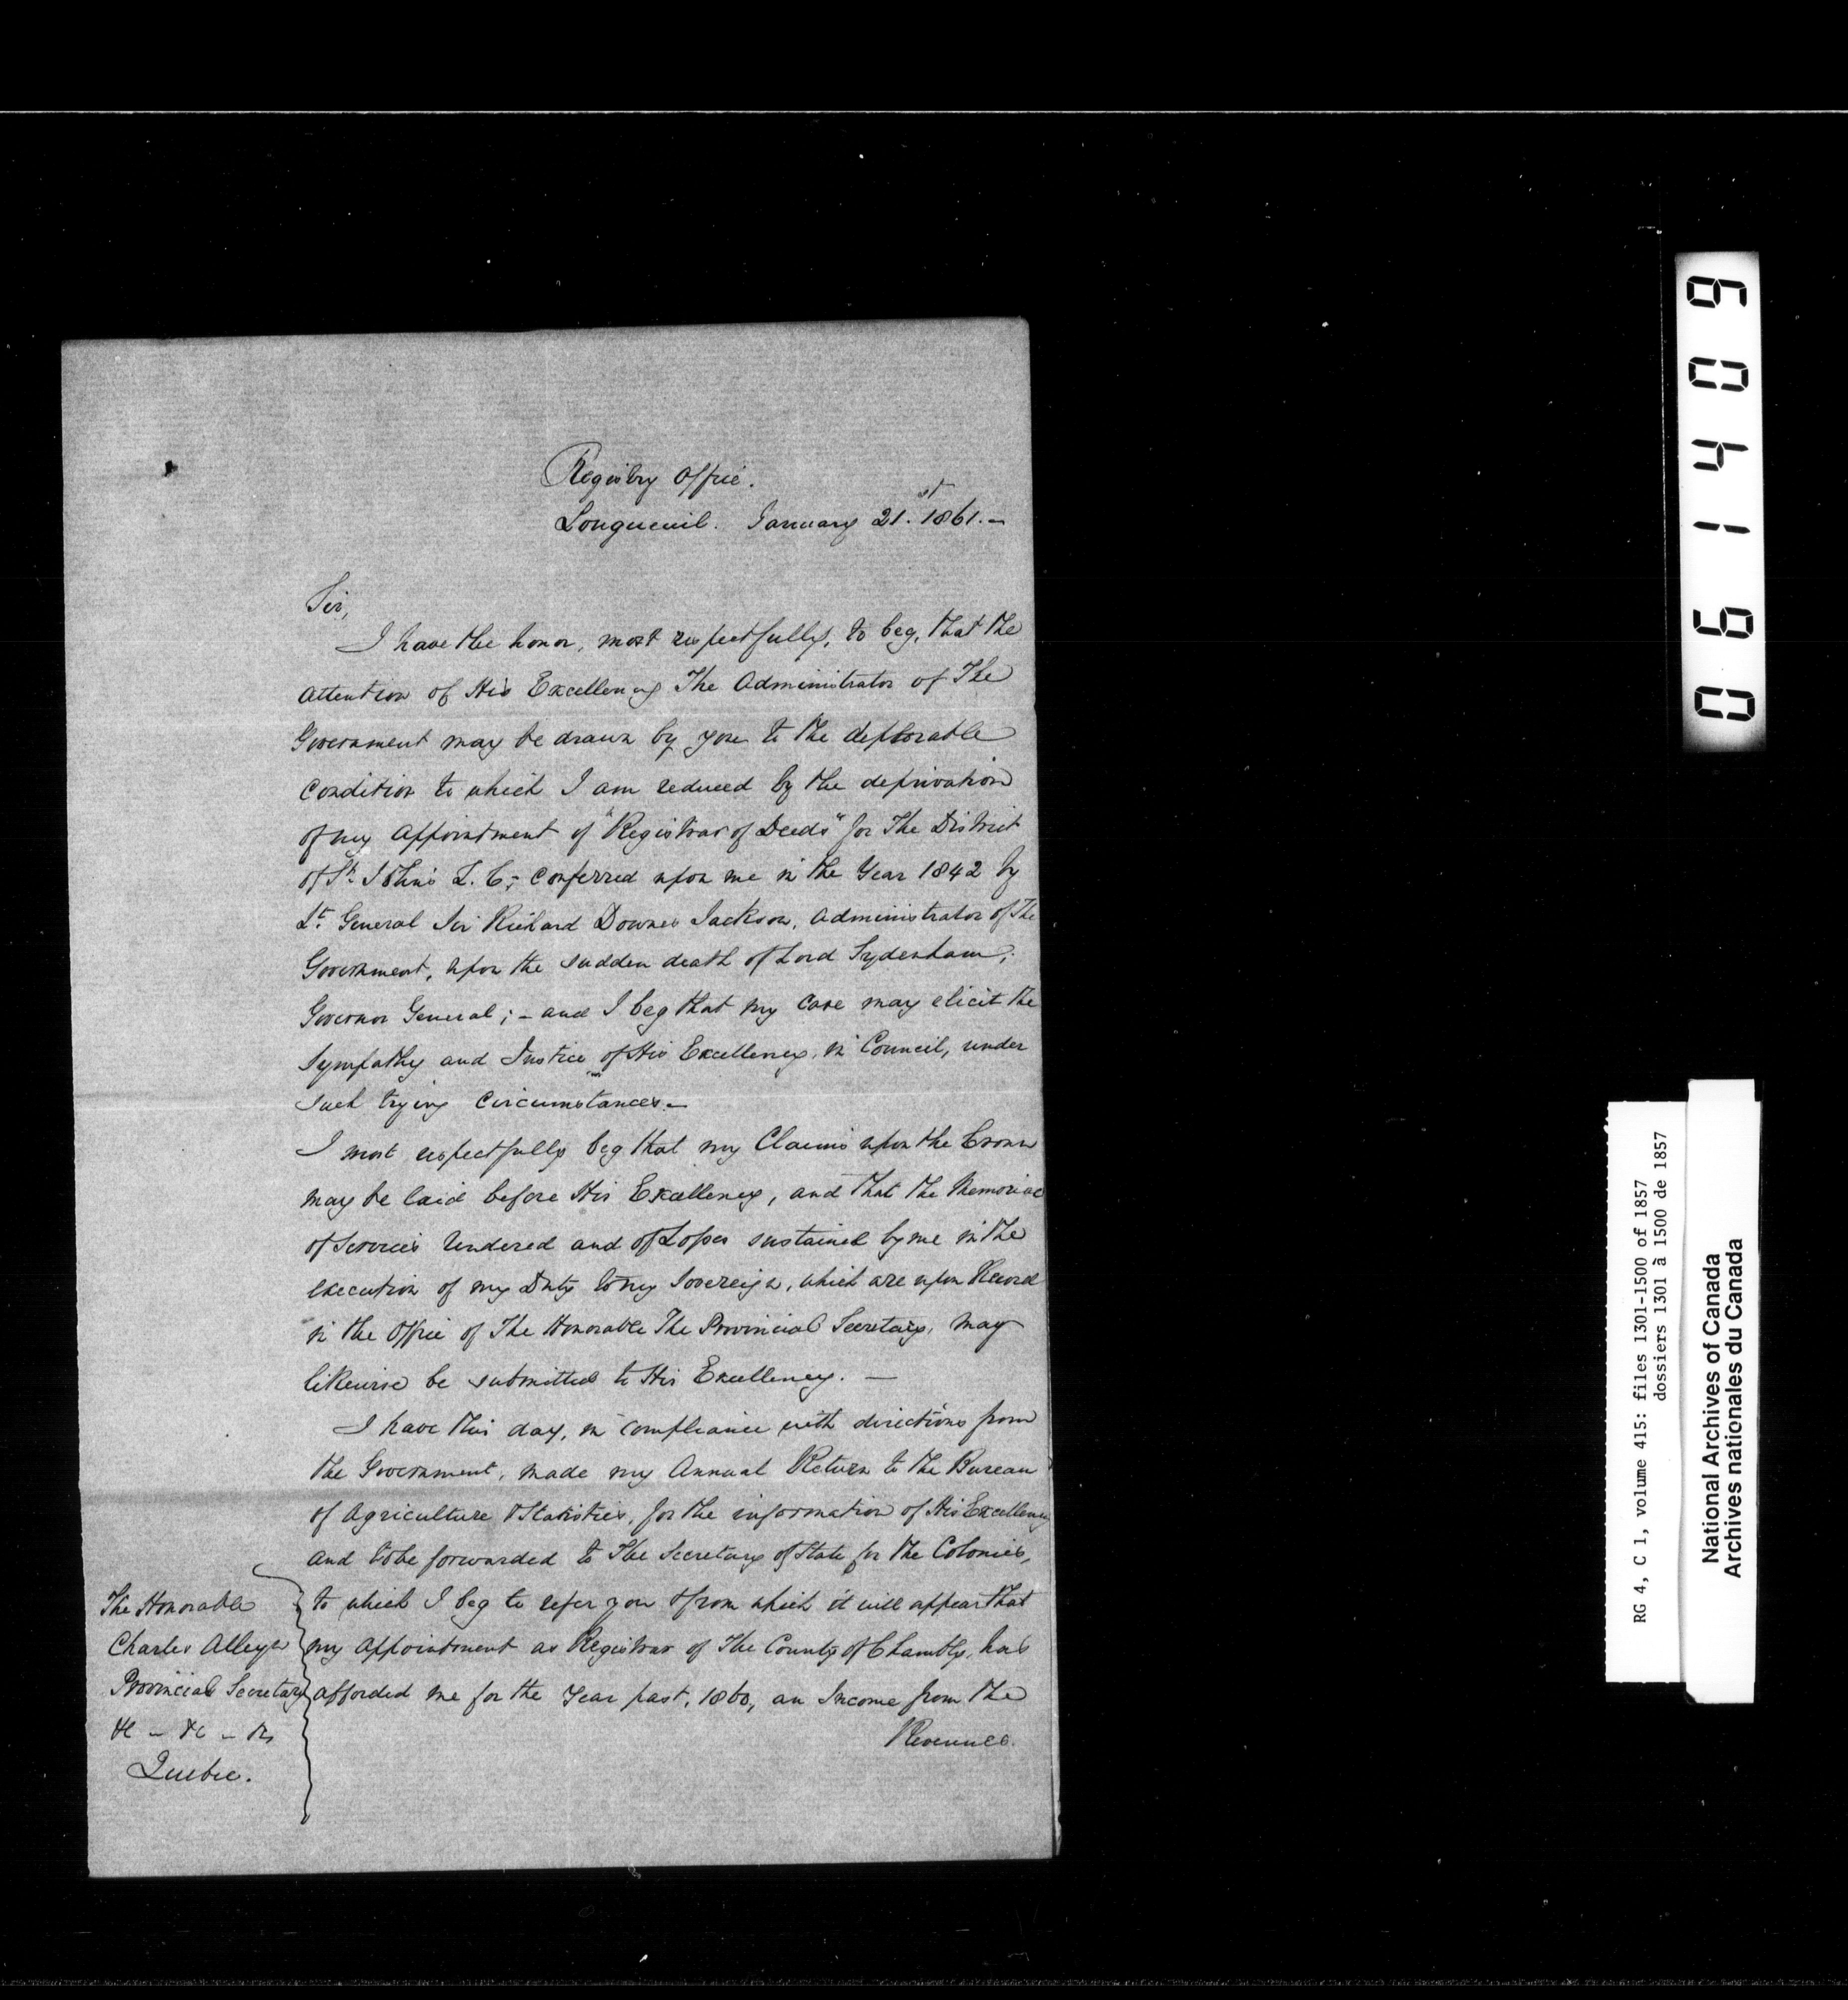 Registry Office.
Longueuil. January 21.st 1861.-
Sir,
I have the honor, most respectfully, to beg, that the
attention of His Excellency The Administrator of The
Government may be drawn by you to the deplorable
condition to which I am reduced by the deprivation
of my Appointment of "Registrar of Deeds" for The District
of St. John's L. C; - conferred upon me in the Year 1842 by
Lt. General Sir Richard Downes Jackson, Administrator of The
Government, upon the sudden death of Lord Sydenham,
Governor General; - and I beg that my case may elicit the
Sympathy and Justice of His Excellency, in Council, under
such trying circumstances. -
I most respectfully beg that my Claims upon the Crown
may be laid before His Excellency, and that the Memorial
of Services rendered and of Losses sustained by me in the
execution of my Duty to my Sovereign, which are upon Record
in the Office of The Honorable The Provincial Secretary, may
likewise be submitted to His Excellency. -
I have this day, in compliance with directions from
the Government, made my Annual Return to the Bureau
of Agriculture & Statistics, for the information of His Excellency
and to be forwarded to The Secretary of State for the Colonies,
to which I beg to refer you & from which it will appear that
my appointment as Registrar of The County of Chambly, has
afforded me for the Year past, 1860, an Income from the
Revenues.
The Honorable
Charles Alleyn
Provincial Secretary
&c - &c - &c
Quebec.
061409
RG 4, C 1, volume 415: files 1301-1500 of 1857
dossiers 1301 à 1500 de 1857
National Archives of Canada
Archives nationales du Canada